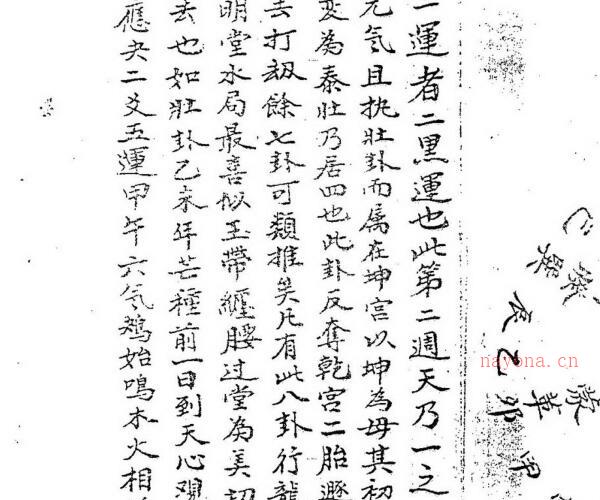 一運者二黑運也此第二週天乃一之
元气且执壯卦而属在坤宫以坤為母其初
変為泰壯乃居四也此卦反奪乾宫二胎遯
去打劫餘七卦可類推矣凡有此八卦行龍
明堂水局最喜似玉带纏腰过堂為美切
去也如壯卦乙未年芒種前一日到天心观
應夬二爻五運甲午六气鵙始鳴木火相
巳
巽
亥
乙
蒙
革
卯
甲
nayona.cn